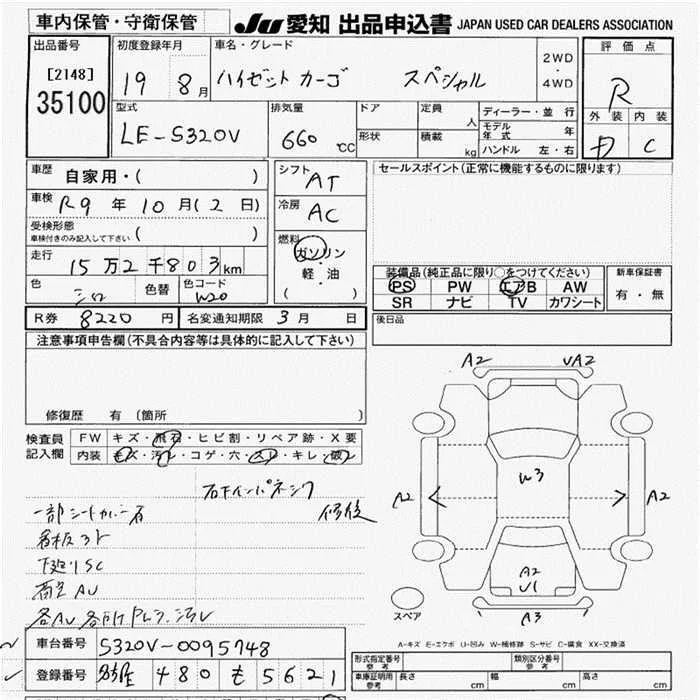 車内保管・守衛保管
JU 愛知 出品申込書 JAPAN USED CAR DEALERS ASSOCIATION
出品番号 初度登録年月 車名・グレード 2WD・4WD 評価点
[2148] 19 8月 ハイゼット カーゴ スペシャル R
35100
型式 排気量 ドア 定員 人 ディーラー・並行 外装 内装
LE-S320V 660 cc 形状 積載 kg モデル年式 年 C
ハンドル 左・右
車歴 自家用・( ) シフト AT セールスポイント(正常に機能するものに限ります)
車検 R9年10月(2日) 冷房 AC
受検形態 車検付きのみ記入して下さい ( )
燃料 ガソリン・軽・油 ( )
走行 15万2千803km
装備品(純正品に限り○をつけてください) 新車保証書
色 シロ 色替 色コード W20 PS PW エアB AW 有・無
SR ナビ TV カワシート
R券 8220円 名変通知期限 3月 日 後日品
注意事項申告欄(不具合内容等は具体的に記入して下さい)
修復歴 有 (箇所 )
検査員記入欄 FW キズ・飛石・ヒビ割・リペア跡・X要
内装 キズ・汚れ・コゲ・穴・スレ・キレ・破れ
A2 UA2
W3
A2 A2
A2
U1
A3
スペア
右下インパネシワ
修後
下廻りSC
A-キズ E-エクボ U-凹み W-補修跡 S-サビ C-腐食 XX-交換済
車台番号 S320V-0095748
登録番号 480 も 5621
形式指定番号 参考 類別区分番号 参考
車庫証明用 参考 長さ cm 幅 cm 高さ cm